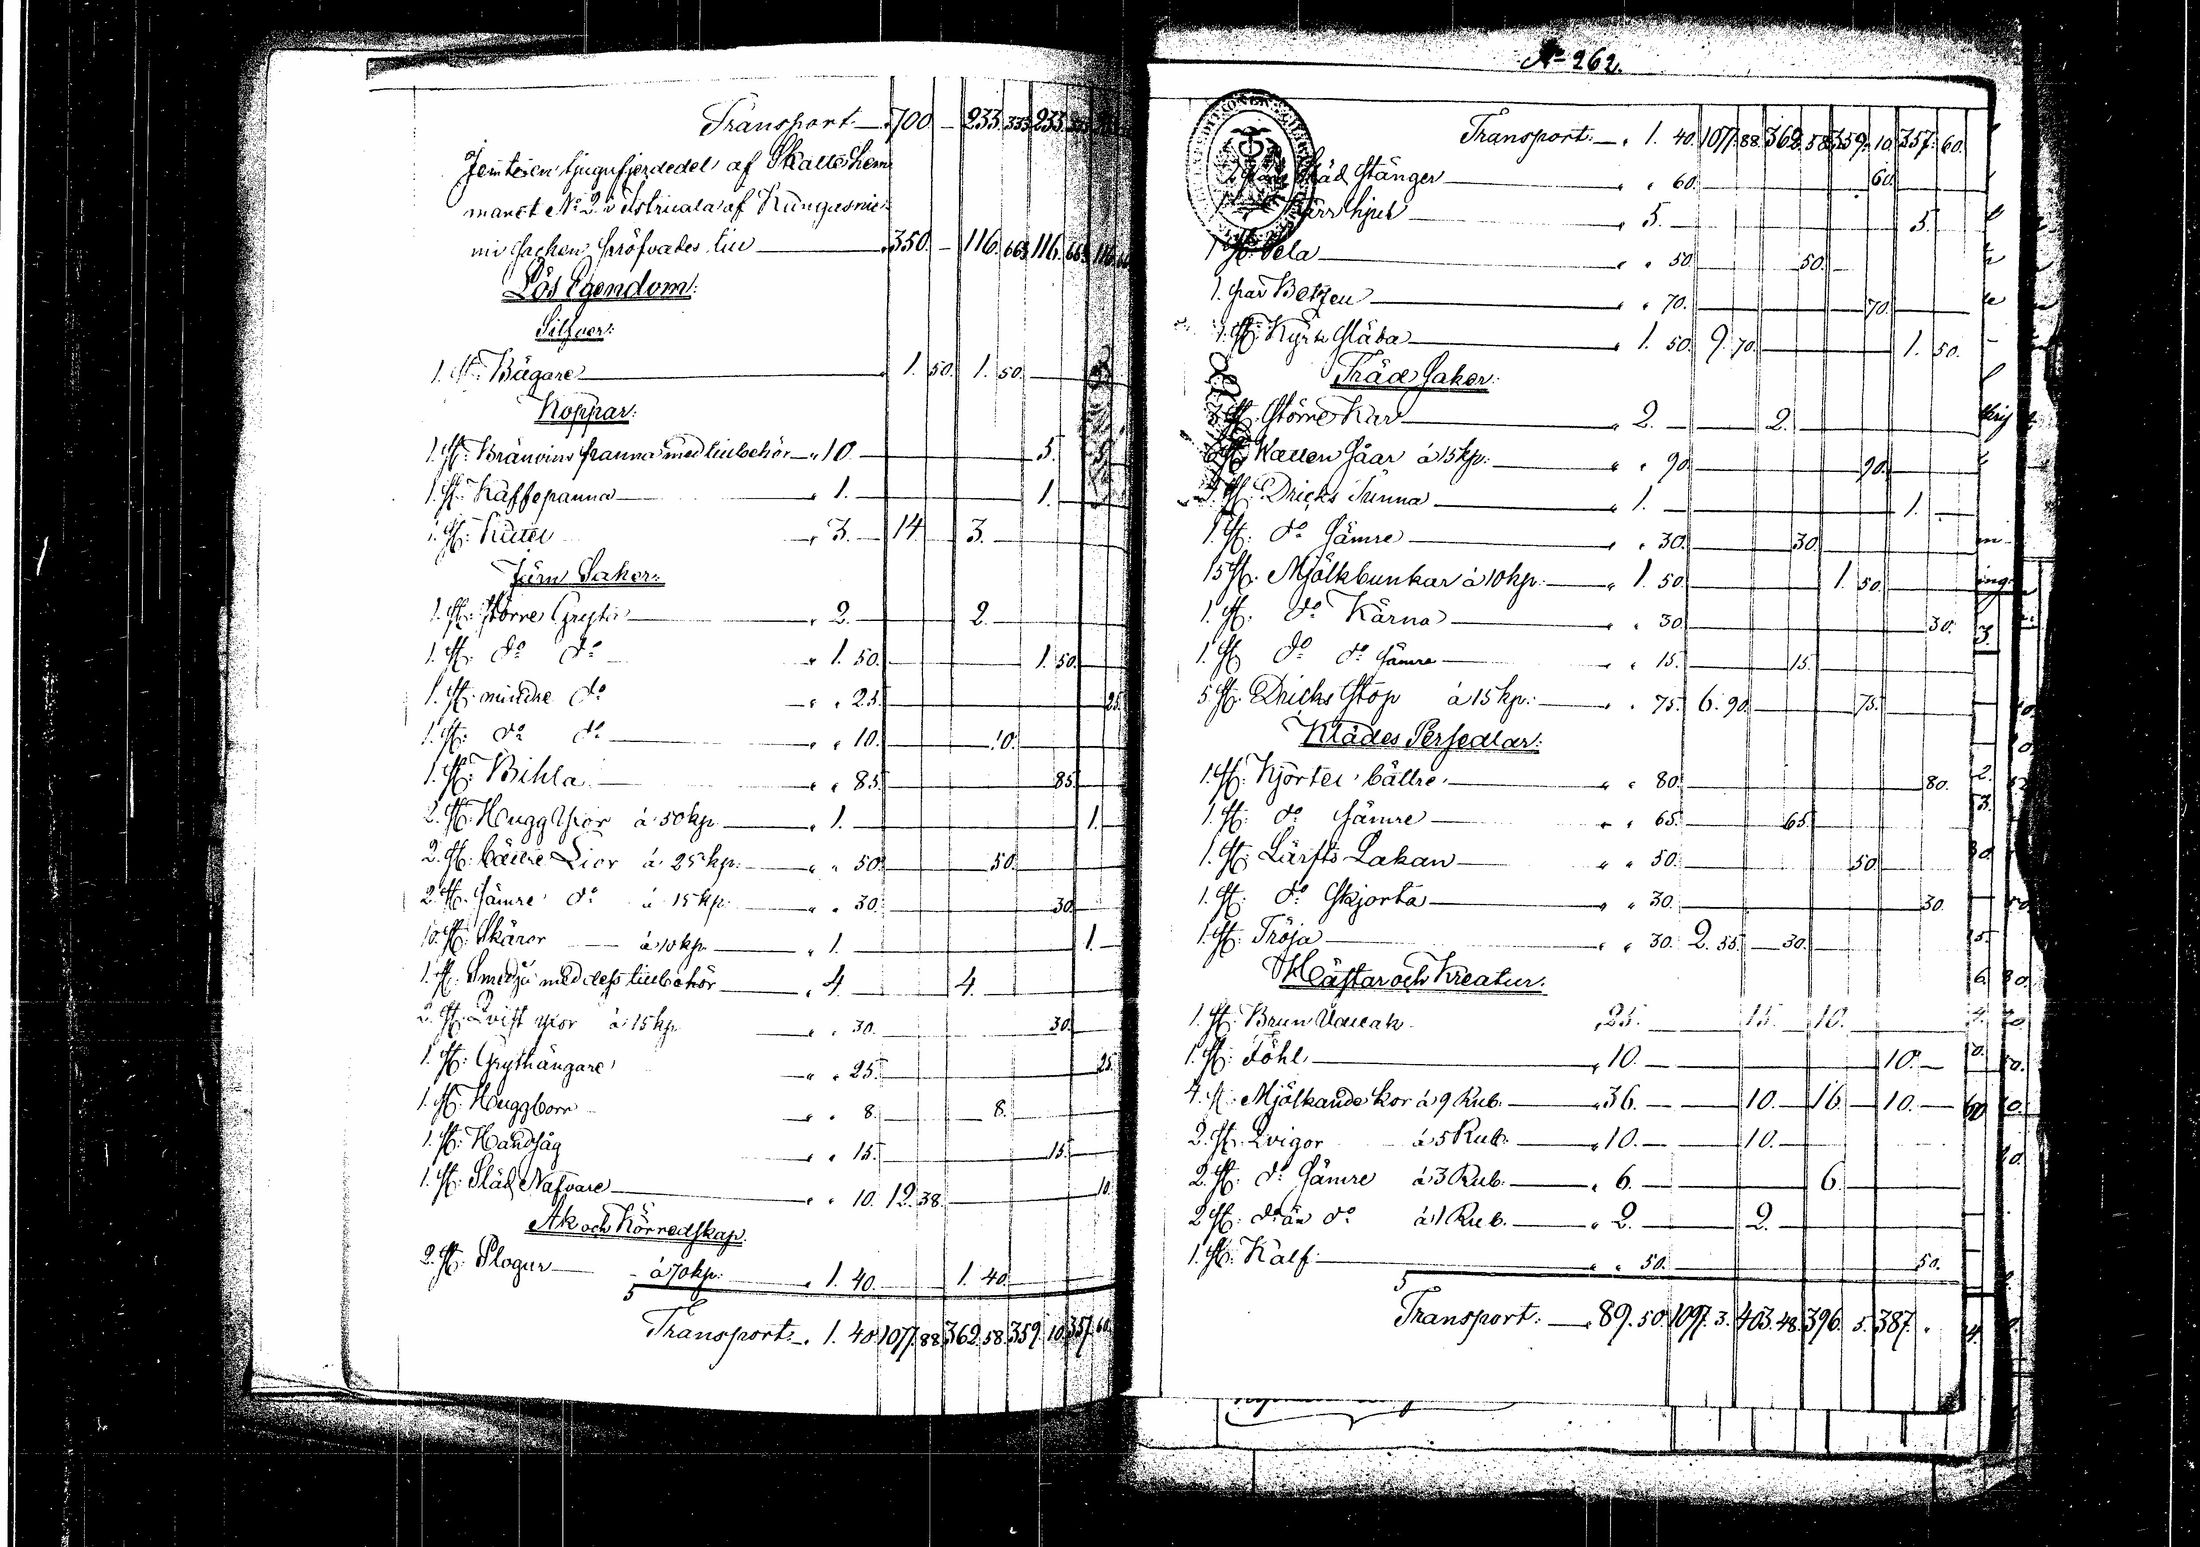 Transport — 700 — 233. 333 233.
Jemte en tjugufjerdedel af Skatte hem
manet No 2 i af Kangasnie
mi Socken pröfvades till — 350. — 116. 663 116. 663 116
Lös Egendom:
Silfver:
1. St: Bägare — 1. 50. 1. 50.
Koppar:
1. St: Bränvins panna med tillbehör — " 10 — 5.
1. St: Kaffepanna — " 1. — 1.
1. St: Kittel — " 3. — 14 3. —
Järn Saker:
1. St: större Gryta — " 2. — 2. —
1. St: do do — " 1. 50. — 1. 50.
1. St: mindre do — " " 25. — 25.
1. St: do do — " " 10. — 10.
1. St: Bihla — " " 85. — 85.
2. St: Hugg Yxor á 50 kp — " 1. — 1.
2. St: bättre Lior á 25 kp: — " " 50. — 50.
2. St: sämre do á 15 kp. — " " 30. — 30.
10. St: Skäror — á 10 kp. — " 1. — 1. —
1. St: Smedja med dess tillbehör — " 4. — 4. —
2. St: Qvist yxor á 15 kp. — " " 30. — 30.
1. St: Grythängare — " " 25. — 25.
1. St: Huggborr — " " 8. — 8.
1. St: Handsåg — " " 15. — 15.
1. St: Släd Nafvare — " " 10. 12. 38. — 10.
Ak och Körredskap.
2. St: Plogar — á 70 kp: — " 1. 40. — 1. 40.
5
Transport: — " 1. 40. 1077. 88. 362. 58. 359. 10. 357. 60.
No 262.
Transport: — " 1. 40. 1077. 88. 362. 58. 359. 10. 357. 60.
Släd Stänger — " " 60. — 60.
Kärr hjul — " 5. — 5. —
1 St: — " " 50. — 50.
1. par — " " 70. — 70.
1. St: Kyrk Släda — " 1. 50. 9. 70. — 1. 50.
Träd Saker:
St: större Kar — " 2. — 2. —
St: Watten Såar á 15 kp: — " " 90. — 90.
St: Dricks Tunna — " 1. — 1. —
1. St: do sämre — " " 30. — 30.
15 St: Mjölkbunkar á 10 kp: — " 1. 50. — 1. 50.
1. St: do Kärna — " " 30. — 30.
1. St: do do sämre — " " 15. — 15.
5 St: Dricks Stop á 15 kp: — " " 75. 6. 90. — 75.
Klädes Persedlar:
1. St: Kjortel bättre — " " 80. — 80.
1. St: do sämre — " " 65. — 65.
1. St: Lärfts Lakan — " " 50. — 50.
1. St: do Skjorta — " " 30. — 30.
1. St: Tröja — " " 30. 2. 55. — 30.
Hästar och Kreatur.
1. St: Brun Vallak — " 25. — 15. — 10. —
1. St: Föhl — " 10. — 10. —
4. St: Mjölkande Kor á 9 Rub. — " 36. — 10. — 16. — 10. —
2. St: Qvigor á 5 Rub: — " 10. — 10. —
2. St: do sämre á 3 Rub: — " 6. — 6. —
2 St: do än do á 1 Rub. — " 2. — 2. —
1. St: Kalf — " " 50. — 50.
5
Transport: — " 89. 50. 1097. 3. 403. 48. 396. 5. 387. "